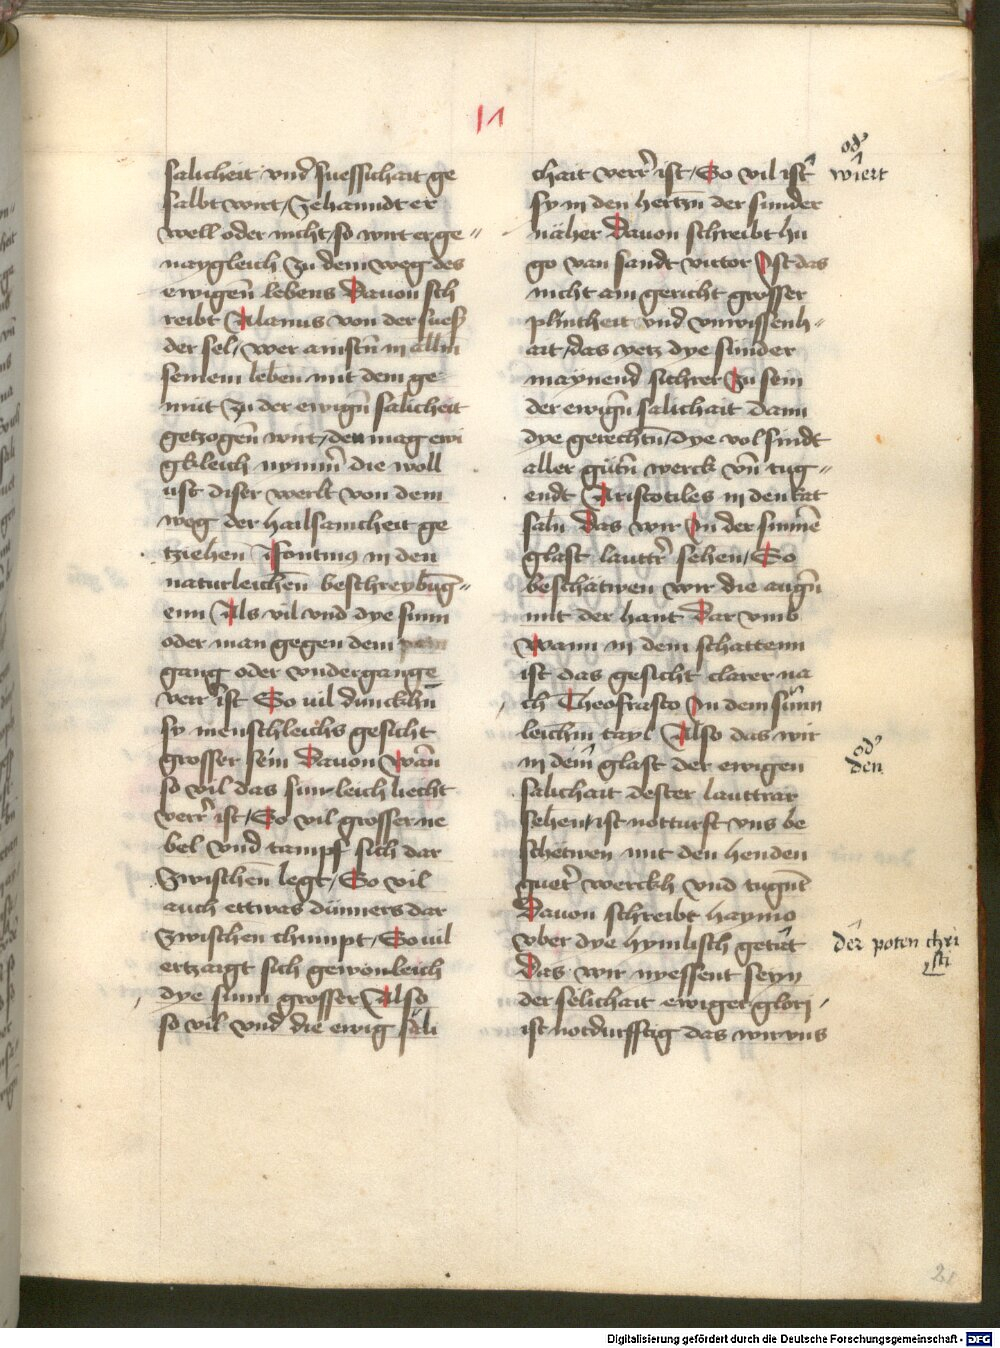 salicheit vnd suessichait ge
salbt wirt / Zehanndt er
well oder nicht / so wirt er ge„
naygleich Zu dem weg des
ewigen̄ lebens Dauon sch
reibt Alanus von der sueß
der sel / wer ainstn̄ in alln̄
seinem leben mit dem ge
müt Zu der ewign̄ salicheit
getzogen̄ wirt / den mag ewi
gkleich nymm̄ die woll
ust diser werlt von dem
weg der hailsamcheit ge
tziehen Ysontinus in den
naturleichen̄ beschreybūg„
enn Als vil vnd dye sunn
oder man gegen dem
gang oder vndergange
verr ist So vil dunckhn̄
sy menschleichs gesicht
grosser sein Dauon Wān
so vil das sunnleich liecht
verr̄ ist / So vil grosser ne
bel vnd tampf sich dar
Zwischen̄ legt / So vil
auch ettwas dünners dar
Zwischen chumpt / So uil
ertzaigt sich gewonleich
dye sunn grosser Also
so vil vnd die ewig säli
chait verr̄ ist / So vil ist
sy in den hertzn̄ der sunder
näher Dauon schreibt hu
go van sandt victor Ist das
nicht am gericht grosser
plintheit vnd vnwissenh„
ait / das yetz dye sünder
maynend sichrer Zu sein
der ewign̄ salichait dann
dye gerechtn̄ / dye vol sindt
aller gütn̄ werck vn̄ tug„
endt Aristotiles in den kat
saln̄ Das wir In der sunnē
glast lauttr̄ sehen / So
beschatwen wir die augn̄
mit der hant Dar vmb
Wann in dem schattenn
ist das gesicht clarer na
ch Theofrasto In dem sūnn
leichm̄ tayl Also das wir
in dem glast der ewigen
salichait dester lauttrar
sehen / ist notturft vns be
schetwen mit den henden
guet̄ werckh vnd tugnt̄
Dauon schreibt haymo
vber dye hymlisch getat
Das wir nyessent seyn
der sëlichait ewiger glori /
ist notdurfftig das wir vns
od̄
wiert
od̄
den
der poten chri
sti
21
Digitalisierung gefördert durch die Deutsche Forschungsgemeinschaft - DFG